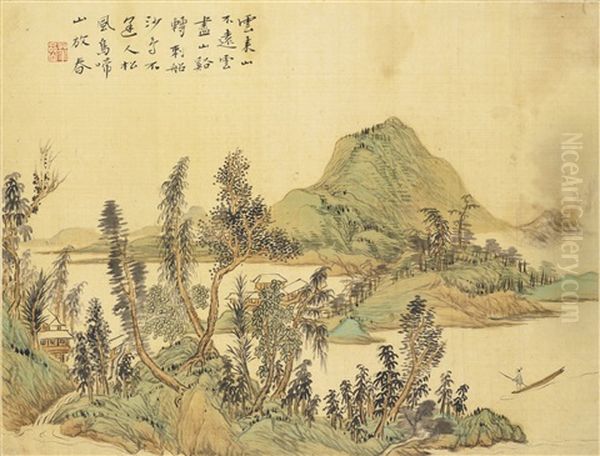 雲來山
不遠雲
盡山谿
轉刺船
沙鳥不
逢人松
風鳥啼
山放春
NiceArtGallery.com